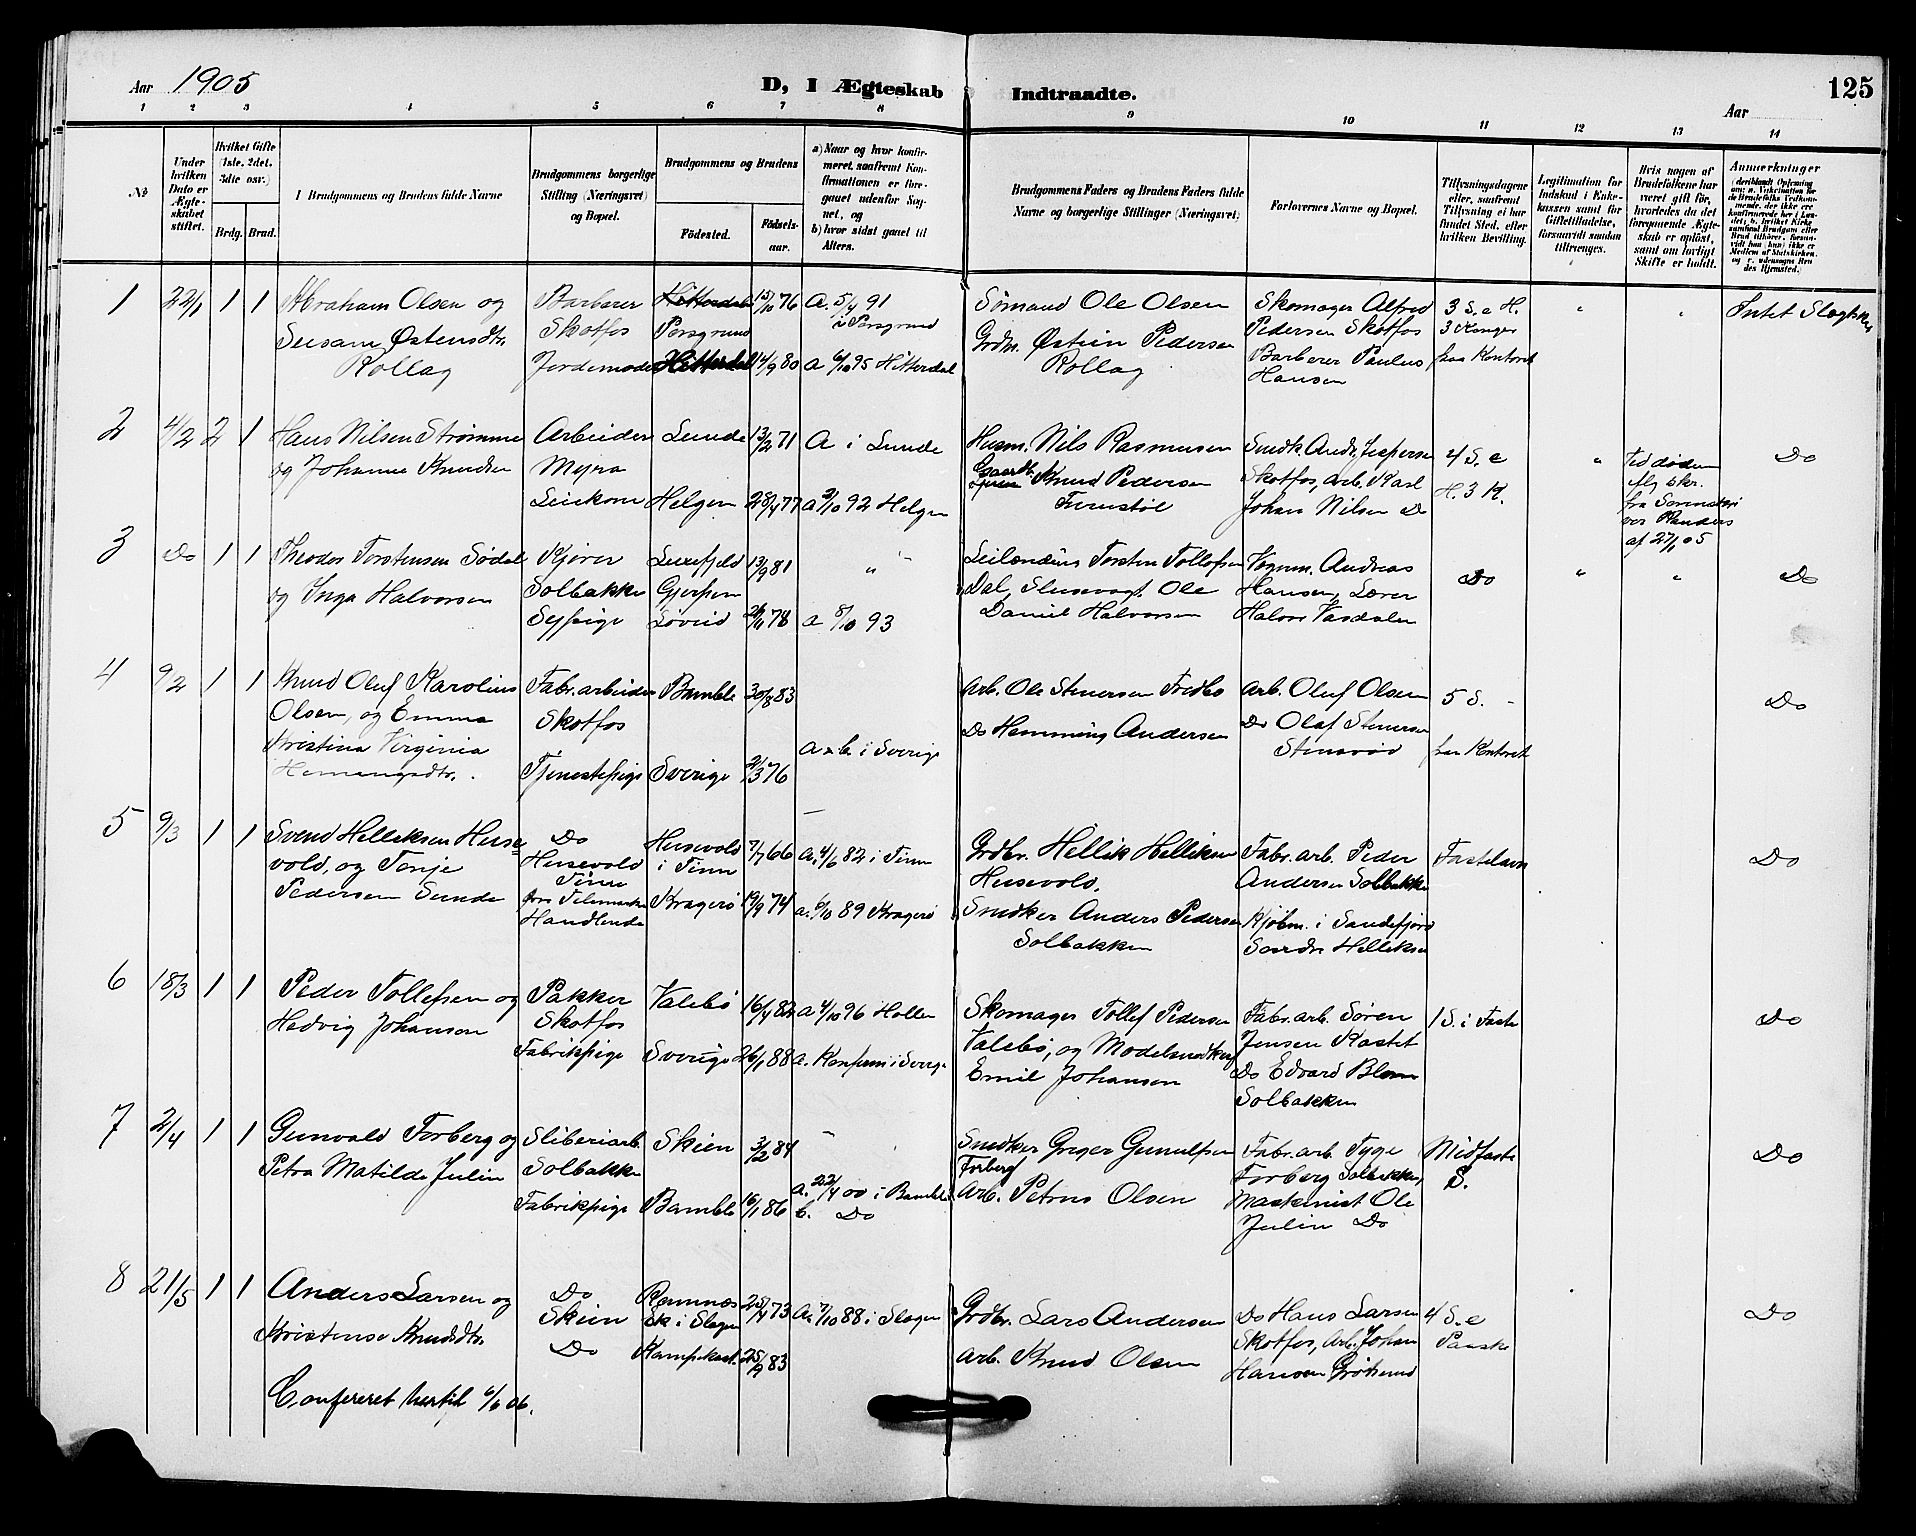 Aar 1905
D, I Ægteskab Indtraadte.
Aar
125
1 2 3 4 5 6 7 8 9 10 11 12 13 14
№
Under hvilken Dato er Ægteskabet stiftet.
Hvilket Gifte (1ste. 2det. 3die osv.)
Brdg. Brud.
I Brudgommens og Brudens fulde Navne
Brudgommens borgerlige Stilling (Næringsvei) og Bopæl.
Brudgommens og Brudens
Fødested. Fødselsaar.
a) Naar og hvor konfirmeret, saafremt Konfirmationen er foregaaet udenfor Sognet, og
b) hvor sidst gaaet til Alters.
Brudgommens Faders og Brudens Faders fulde Navne og borgerlige Stillinger (Næringsvei)
Forlovernes Navne og Bopæl.
Tillysningsdagene eller, saafremt Tillysning ei har fundet Sted, efter hvilken Bevilling.
Legitimation for Indskud i Enkekassen samt for Giftetilladelse, forsaavidt saadan tiltrænges.
Hvis nogen af Brudefolkene har været gift før, hvorledes da det foregaaende Ægteskab er opløst, samt om lovligt Skifte er holdt.
Anmerkninger
1 22/1 1 1 Abraham Olsen og Barberer Hitterdal 15/10 76 a. 5/4 91 Sømand Ole Olsen Skomager Alfred 3 S. e H. " " Intet Slægtsk.
Susanne Østensdtr. Skotfos Porsgrund i Porsgrund Grdm. Østein Pedersen Pedersen Skotfos 3 Konger
Rollag Jordemoder Hitterdal 14/9 80 a 6/10 95 Hitterdal Rollag Barberer Paulus fra Kontoret
Hansen
2 4/2 2 1 Hans Nilsen Strømme Arbeider Lunde 13/2 71 a i Lunde Husm. Nils Rasmussen Smedk. Andr. Jespersen 4 S. e " Ved døden Do
og Johanne Knudsen Myra Gaardbr. Knud Pedersen Skotfos, arb. Karl H. 3 K. iflg skr.
Leiekone Helgen 28/4 77 a 2/10 92 Helgen Furustøl Johan Nilsen Do fra Sorenskriver Randers
af 27/1 05
3 Do 1 1 Theodor Torstensen Sødal Kjører Luxefjeld 13/9 81 " Leilænding Torsten Tollefsen Vognm. Andreas Do " " Do
og Inga Halvorsen Solbakken Gjerpen Dal, Slusevogt Ole Hansen, Lærer
Sypige Løveid 26/11 78 a 8/10 93 Daniel Halvorsen Halvor Vasdalen
4 9/2 1 1 Knud Oluf Karolius Fabr. arbeider Bamble 30/8 83 Arb. Ole Stenersen Tredbo arb. Oluf Olsen 5 S. - Do
Olsen, og Emma Skotfos Do Hemming Andersen Do Olaf Stenersen
Kristina Virginia a & b. i Sverige Stensrød fra Kontoret
Hemmingsdtr. Tjenestepige Sverige 21/3 76
5 9/3 1 1 Svend Helleksen Husevold, og Tonje Do Husevold 7/7 66 a. 4/6 82 i Tinn Grdbr. Hellik Helliksen Fabr. arb. Peder Fastelavn Do
Pedersen Sunde Husevold i Tinn Husevold. Andersen Solbakken
Tinn Kragerø 19/9 74 a. 6/10 89 Kragerø Snedker Anders Pedersen Kjøbm. i Sandefjord
Øvre Telemarken
Handlende Solbakken Sondre Helleksen
6 18/3 1 1 Peder Tollefsen og Pakker Valebø 16/4 82 a 4/10 96 Hollen Skomager Tollef Pedersen Fabr. arb. Søren 1 S. i Faste Do
Hedvig Johanson Skotfos Valebø, og Modelsnedker Jensen Kastet
Fabrikpige Sverige 26/1 88 a. Konfirm i Sverige Emil Johansen Do Edvard Blom
Solbakken
7 2/4 1 1 Gunvald Forberg og Sliberiarb Skien 3/2 84 - Snedker Greger Gunulfsen Fabr. arb. Tyge Midfaste Do
Petra Matilde Julin Solbakken Forberg Forberg Solbakken, S.
Fabrikpige Bamble 16/1 86 a. 22/4 00 i Bamble Arb. Petrus Olsen Maskinist Ole
b. Do Julin Do
8 21/5 1 1 Anders Larsen og Do Ramnæs 25/4 73 a. 7/10 88 i Slagen Grdbr. Lars Andersen Do Hans Larsen 4 S. e Do
Kristense Knudsdtr. Skien Sk i Slagen Arb. Knud Olsen Skotfos, Arb. Johan Paaske
Do Kampekast. 25/2 83 Hansen Grøtsund
Confereret hertil 6/6 06.